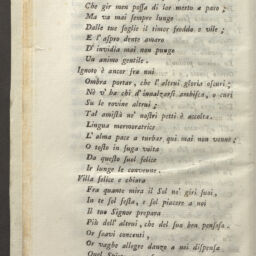 Che gir men possa di lor merto a paro;
Ma va mai sempre lunge
Dalle tue soglie il timor freddo e vile;
E l' aspro dente amaro
D' invidia mai non punge
Un animo gentile.
Ignoto è ancor fra noi
Ombra portar, che l' altrui gloria oscuri;
Nè v' ha chi d' innalzarsi ambisca, e curi
Su le rovine altrui;
Tal amistà ne' nostri petti è accolta.
Lingua mormoratrice
L' alma pace a turbar quì mai non venne;
O tosto in fuga volta
Da questo suol felice
Ir lunge le convenne.
Villa felice e chiara
Fra quante mira il Sol ne' giri suoi,
In te sol festa, e sol piacere a noi
Il tuo Signor prepara
Più dell' altrui, che del suo ben pensoso.
Or soavi concenti,
Or vaghe allegre danze a noi dispensa